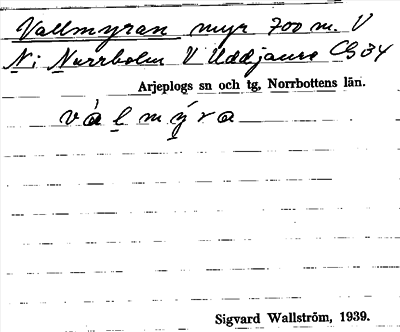 Vallmyran myr 700 m. V
N i Norrholm V Uddjaure CG34
Arjeplogs sn och tg, Norrbottens län.
vàlmýra
Sigvard Wallström, 1939.